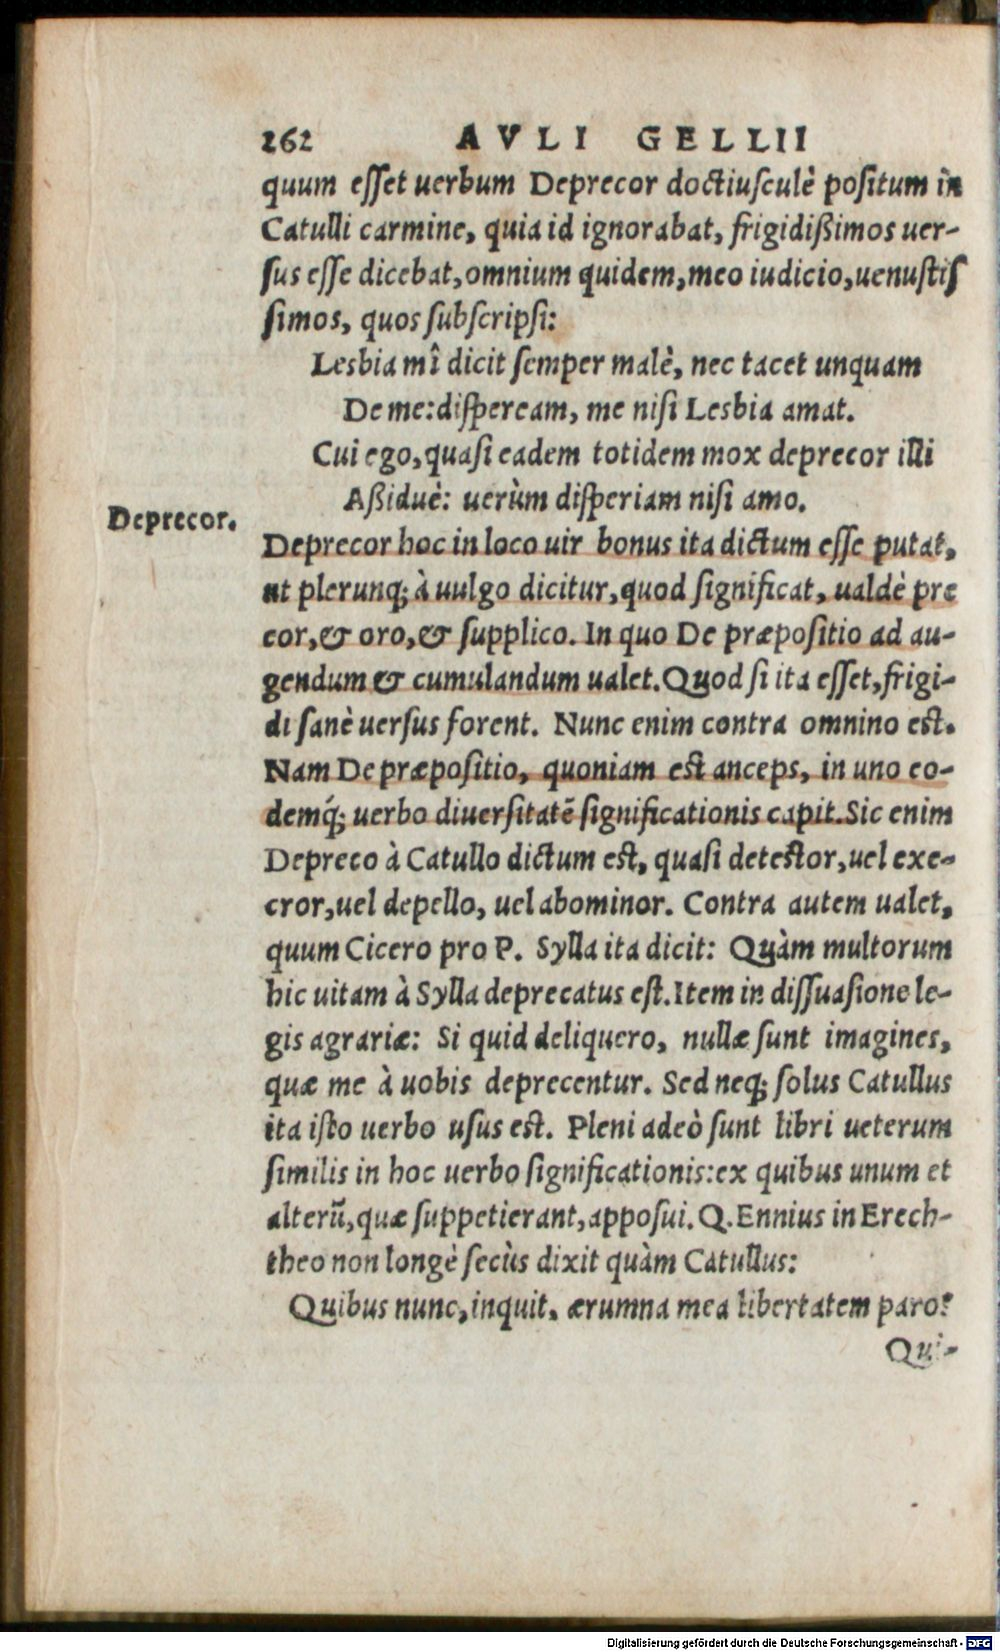 262 AVLI GELLII
quum esset uerbum Deprecor doctiusculè positum in
Catulli carmine, quia id ignorabat, frigidißimos uer-
sus esse dicebat, omnium quidem, meo iudicio, uenustis
simos, quos subscripsi:
Lesbia mî dicit semper malè, nec tacet unquam
De me: dispeream, me nisi Lesbia amat.
Cui ego, quasi eadem totidem mox deprecor illi
Aßiduè: uerùm disperiam nisi amo.
Deprecor.
Deprecor hoc in loco uir bonus ita dictum esse putat,
ut plerunq; à uulgo dicitur, quod significat, ualdè pre
cor, & oro, & supplico. In quo De præpositio ad au-
gendum & cumulandum ualet. Quod si ita esset, frigi-
di sanè uersus forent. Nunc enim contra omnino est.
Nam De præpositio, quoniam est anceps, in uno eo-
demq́; uerbo diuersitatē significationis capit. Sic enim
Depreco à Catullo dictum est, quasi detestor, uel exe-
cror, uel depello, uel abominor. Contra autem ualet,
quum Cicero pro P. Sylla ita dicit: Quàm multorum
hic uitam à Sylla deprecatus est. Item in dissuasione le-
gis agrariæ: Si quid deliquero, nullæ sunt imagines,
quæ me à uobis deprecentur. Sed neq; solus Catullus
ita isto uerbo usus est. Pleni adeò sunt libri ueterum
similis in hoc uerbo significationis: ex quibus unum et
alterū, quæ suppetierant, apposui. Q. Ennius in Erech-
theo non longè secùs dixit quàm Catullus:
Quibus nunc, inquit, ærumna mea libertatem paro?
Qui-
Digitalisierung gefördert durch die Deutsche Forschungsgemeinschaft - DFG